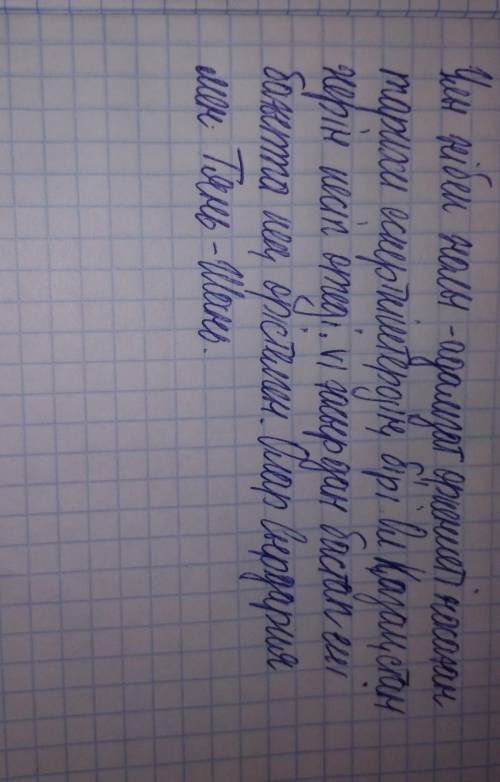 Ұлы жібек жолы - адамзат өркениет жасаған
тарихи ескерткіштердің бірі. Ол Қазақстан
жерін кесіп өтеді. VI ғасырдан бастап екі
бағытта кең өрістеген. Олар Сырдария
мен Тянь - Шань.